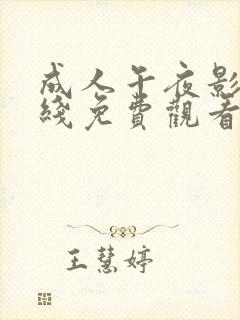 成人午夜影
綫免費觀看
王慧婷